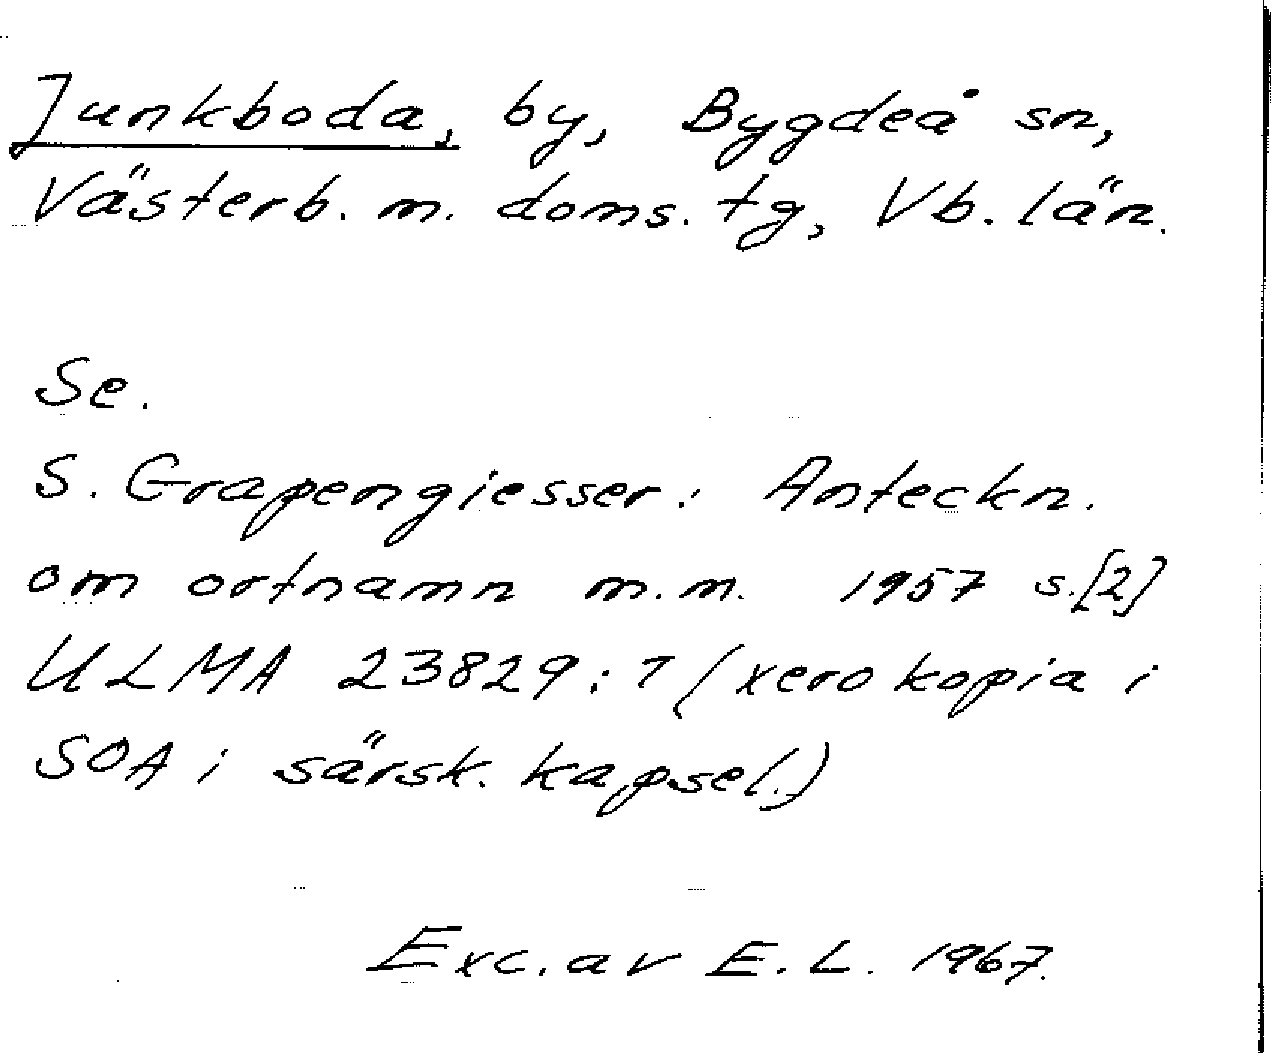 Junkboda, by, Bygdeå sn,
Västerb. m. doms. tg, Vb. län.
Se.
S. Grapengiesser: Anteckn.
om ortnamn m.m. 1957 s.[2]
ULMA 23829:7 (xerokopia i
SOA i särsk. kapsel.)
Exc. av E.L. 1967.